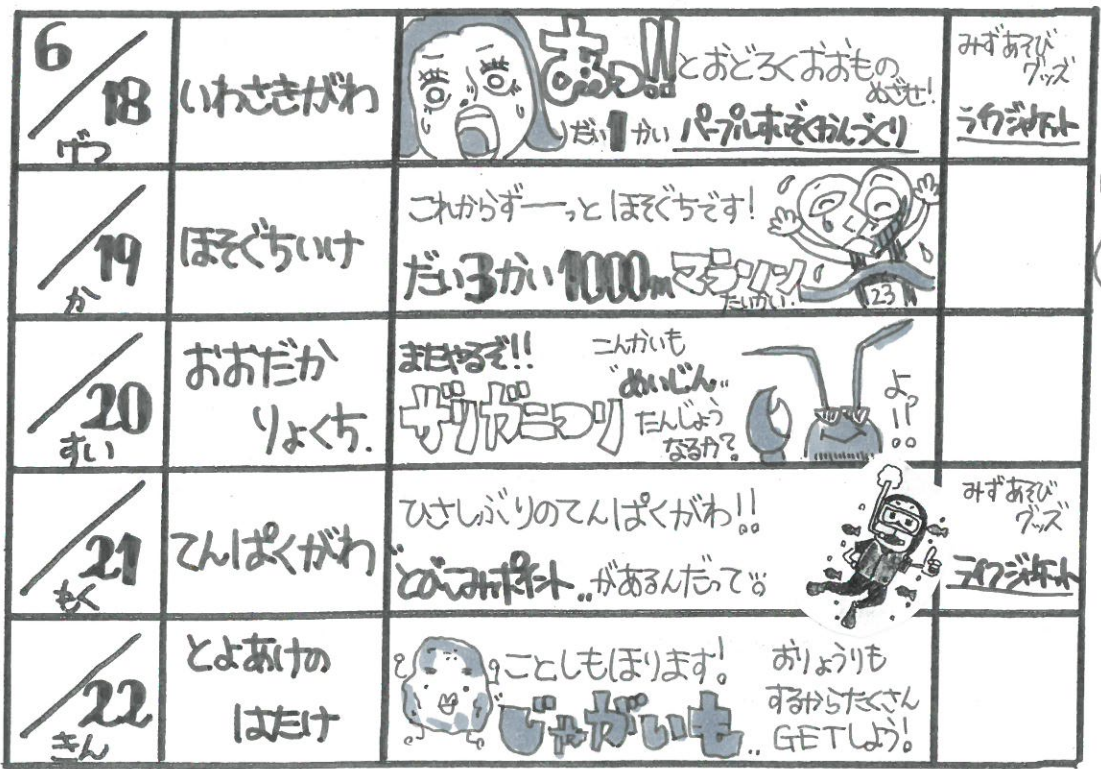 6/18
げつ
いわさきがわ
おっ!!とおどろくおおもの
めざせ!
だい1かい パープルすいぞくかんづくり
みずあそび
グッズ
ライフジャケット
/19
か
ほそぐちいけ
これからず——っとほそぐちです!
だい3かい1000mマラソン
たいかい.
123
/20
すい
おおだか
りょくち.
またやるぞ!!
ザリガニつり
こんかいも
"めいじん"
たんじょう
なるか?
よっ!?
/21
もく
てんぱくがわ
ひさしぶりのてんぱくがわ!!
とびこみポイント..があるんだって。
みずあそび
グッズ
ライフジャケット
/22
きん
とよあけの
はたけ
ことしもほります!
じゃがいも..
おりょうりも
するからたくさん
GETしよう!